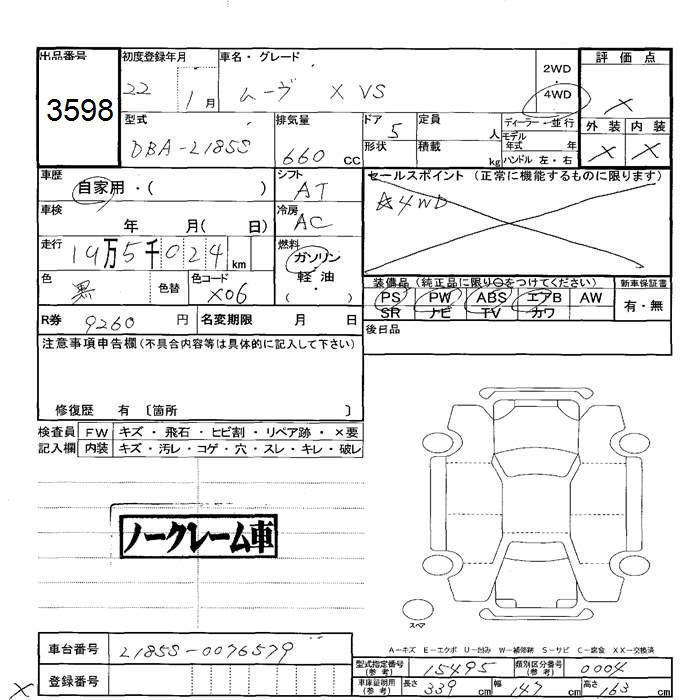 出品番号 初度登録年月 車名・グレード 評価点
3598 22 1月 ムーヴ X VS 2WD ・ 4WD ×
型式 排気量 ドア 定員 ディーラー・並行 外装 内装
DBA-L185S 660 CC 5 人 モデル年式 年 × ×
形状 積載 kg ハンドル 左・右
車歴 シフト セールスポイント (正常に機能するものに限ります)
自家用・( ) AT ☆4WD
車検 年 月( 日) 冷房 AC
走行 14万5千024km 燃料 ガソリン
軽・油
( )
色 黒 色替 色コード X06
装備品 (純正品に限り○をつけてください) 新車保証書
PS PW ABS エアB AW 有・無
SR ナビ TV カワ
R券 9260 円 名変期限 月 日 後日品
注意事項申告欄(不具合内容等は具体的に記入して下さい)
修復歴 有 〔箇所 〕
検査員 FW キズ・飛石・ヒビ割・リペア跡・×要
記入欄 内装 キズ・汚レ・コゲ・穴・スレ・キレ・破レ
ノークレーム車
スペア
A-キズ E-エクボ U-凹み W-補修跡 S-サビ C-腐食 XX-交換済
車台番号 L185S-0076579
型式指定番号(参考) 15495 類別区分番号(参考) 0004
× 登録番号 車庫証明用(参考) 長さ 339 cm 幅 147 cm 高さ 163 cm